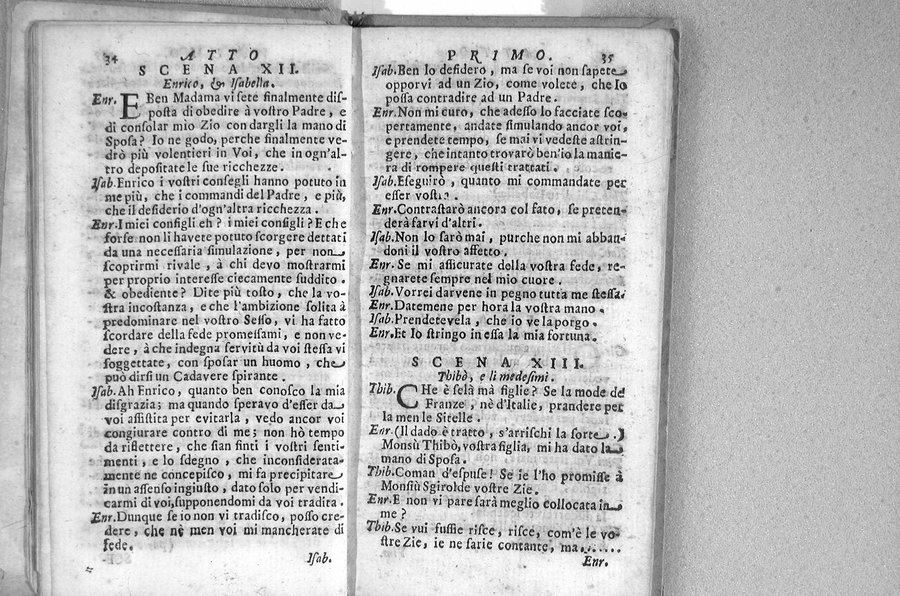 34
ATTO
SCENA XII.
Enrico, & Isabella.
Enr. E Ben Madama vi sete finalmente dis-
posta di obedire à vostro Padre, e
di consolar mio Zio con dargli la mano di
Sposa? Io ne godo, perche finalmente ve-
drò più volentieri in Voi, che in ogn'al-
tro depositate le sue ricchezze.
Isab. Enrico i vostri consegli hanno potuto in
me più, che i commandi del Padre, e più,
che il desiderio d'ogn'altra ricchezza.
Enr. I miei configli eh? i miei configli? E che
forse non li havete potuto scorgere dettati
da una necessaria simulazione, per non
scoptirmi rivale, à chi devo mostrarmi
per proprio interesse ciecamente suddito.
& obediente? Dite più tosto, che la vo-
stra incostanza, e che l'ambizione solita à
predominare nel vostro Sesso, vi ha fatto
scordare della fede promessami, e non ve-
dere, à che indegna servitù da voi stessa vi
soggettate, con sposar un huomo, che
può dirsi un Cadavere spirante.
Isab. Ah Enrico, quanto ben conosco la mia
disgrazia; ma quando speravo d'esser da
voi assistita per evitarla, vedo ancor voi
congiurare contro di me; non hò tempo
da riflettere, che sian finti i vostri senti-
menti, e lo sdegno, che inconsiderata-
mente ne concepisco, mi fa precipitare
in un assenso ingiusto, dato solo per vendi-
carmi di voi, supponendomi da voi tradita.
Enr. Dunque se io non vi tradisco, posso cre-
dere, che nè men voi mi mancherate di
fede.
Isab.
PRIMO.
35
Isab. Ben lo desidero, ma se voi non sapete
opporvi ad un Zio, come volete, che Io
possa contradire ad un Padre.
Enr. Non mi curo, che adesso lo facciate sco-
pertamente, andate simulando ancor voi,
e prendete tempo, se mai vi vedeste astrin-
gere, che intanto trovarò ben'io la manie-
ra di rompere questi trattati.
Isab. Eseguirò, quanto mi commandate per
esser vostra.
Enr. Contrastarò ancora col fato, se preten-
derà farvi d'altri.
Isab. Non lo sarò mai, purche non mi abban-
doni il vostro affetto.
Enr. Se mi assicurate della vostra fede, re-
gnarete sempre nel mio cuore.
Isab. Vorrei darvene in pegno tutta me stessa.
Enr. Datemene per hora la vostra mano.
Isab. Prendetevela, che io ve la porgo.
Enr. Et Io stringo in essa la mia fortuna.
SCENA XIII.
Thibò, e li medesimi.
Thib. CHe è selà mà figlie? Se la mode de
Franze, nè d'Italie, prandere per
la men le Sitelle.
Enr. (Il dado è tratto, s'arrischi la sorte.)
Monsù Thibò, vostra figlia, mi ha dato la
mano di Sposa.
Thib. Coman d'espuse! Se ie l'ho promisse à
Monsiù Sgirolde vostre Zie.
Enr. E non vi pare sarà meglio collocata in
me?
Thib. Se vui fussie risce, risce, com'è le vo-
stre Zie, ie ne sarie contante, ma.......
Enr.